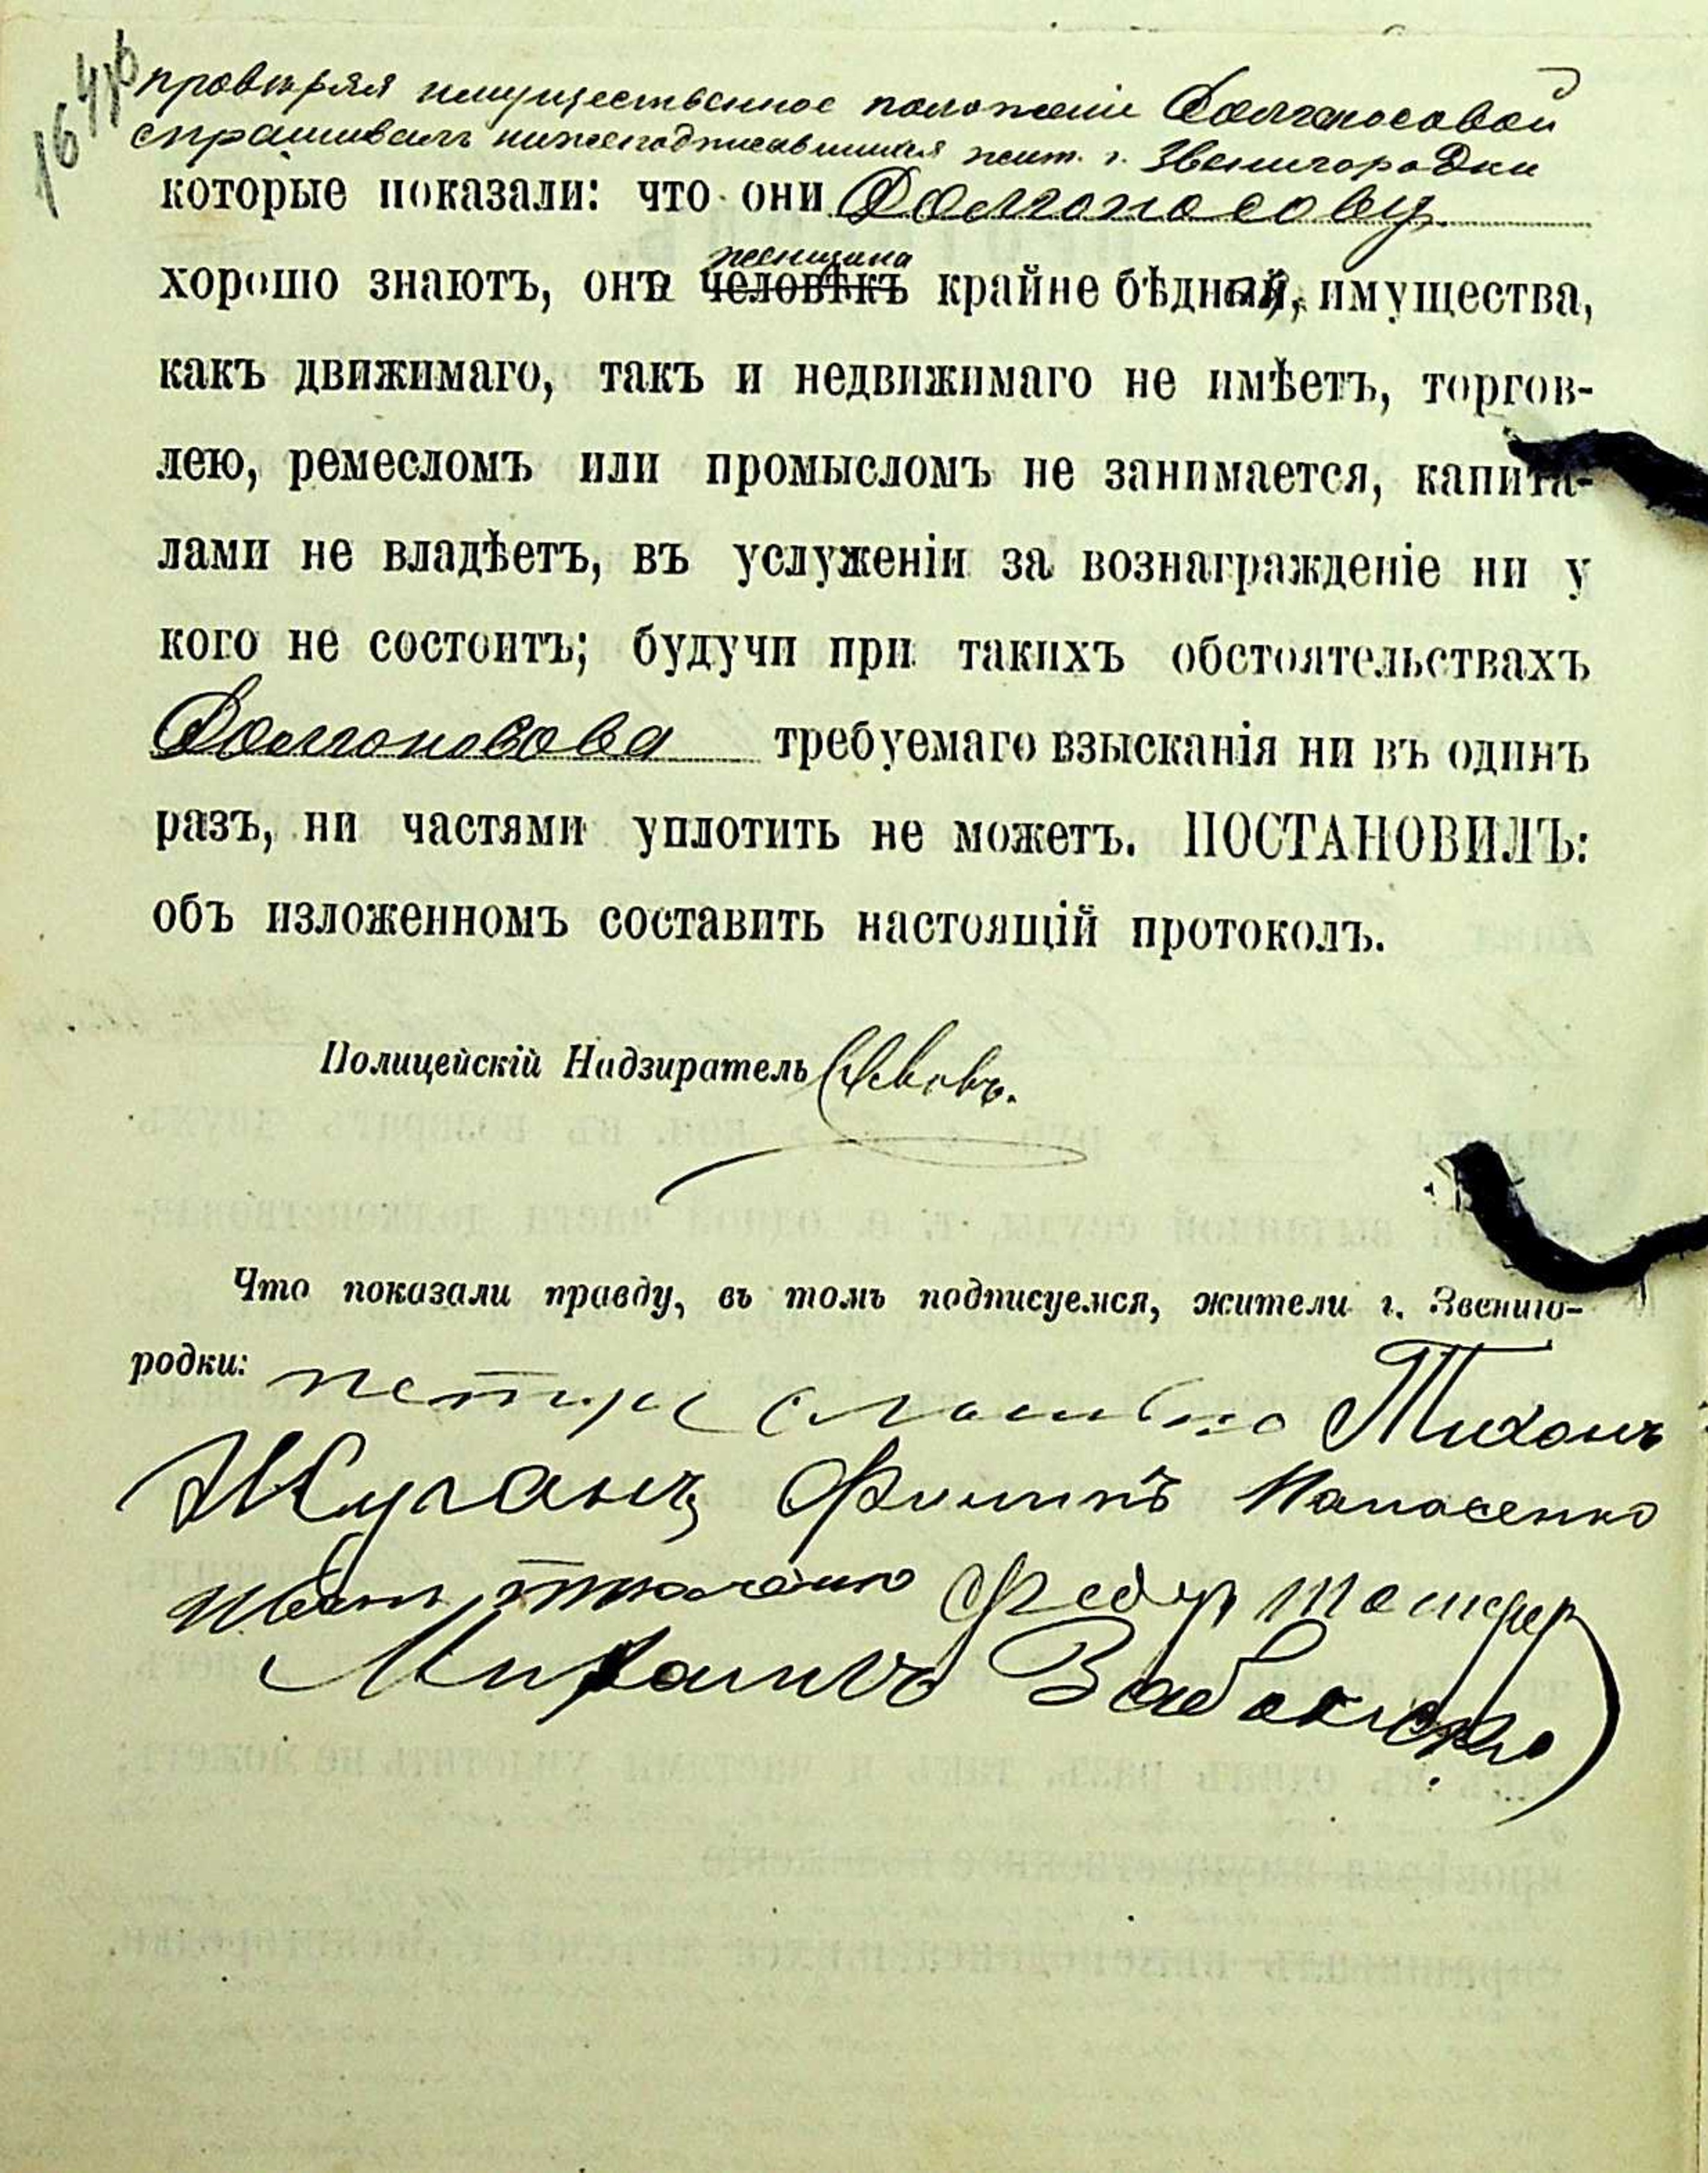 провѣряя имущественное положеніе Долгоносовой
спрашивалъ нижеподписавшихся жит. г. Звенигородки
которые показали: что они Долгоносову
хорошо знаютъ, она женщина человѣкъ крайне бѣдная, имущества,
какъ движимаго, такъ и недвижимаго не имѣетъ, торгов-
лею, ремесломъ или промысломъ не занимается, капита-
лами не владѣетъ, въ услуженіи за вознагражденіе ни у
кого не состоитъ; будучи при такихъ обстоятельствахъ
Долгоносова требуемаго взысканія ни въ одинъ
разъ, ни частями уплотить не можетъ. ПОСТАНОВИЛЪ:
объ изложенномъ составить настоящій протоколъ.
Полицейскій Надзиратель
Что показали правду, въ томъ подписуемся, жители г. Звениго-
родки: Петръ Тихонъ
Жуганъ Филипъ Панасенко
Иван Ткаченко Федор
Михаилъ